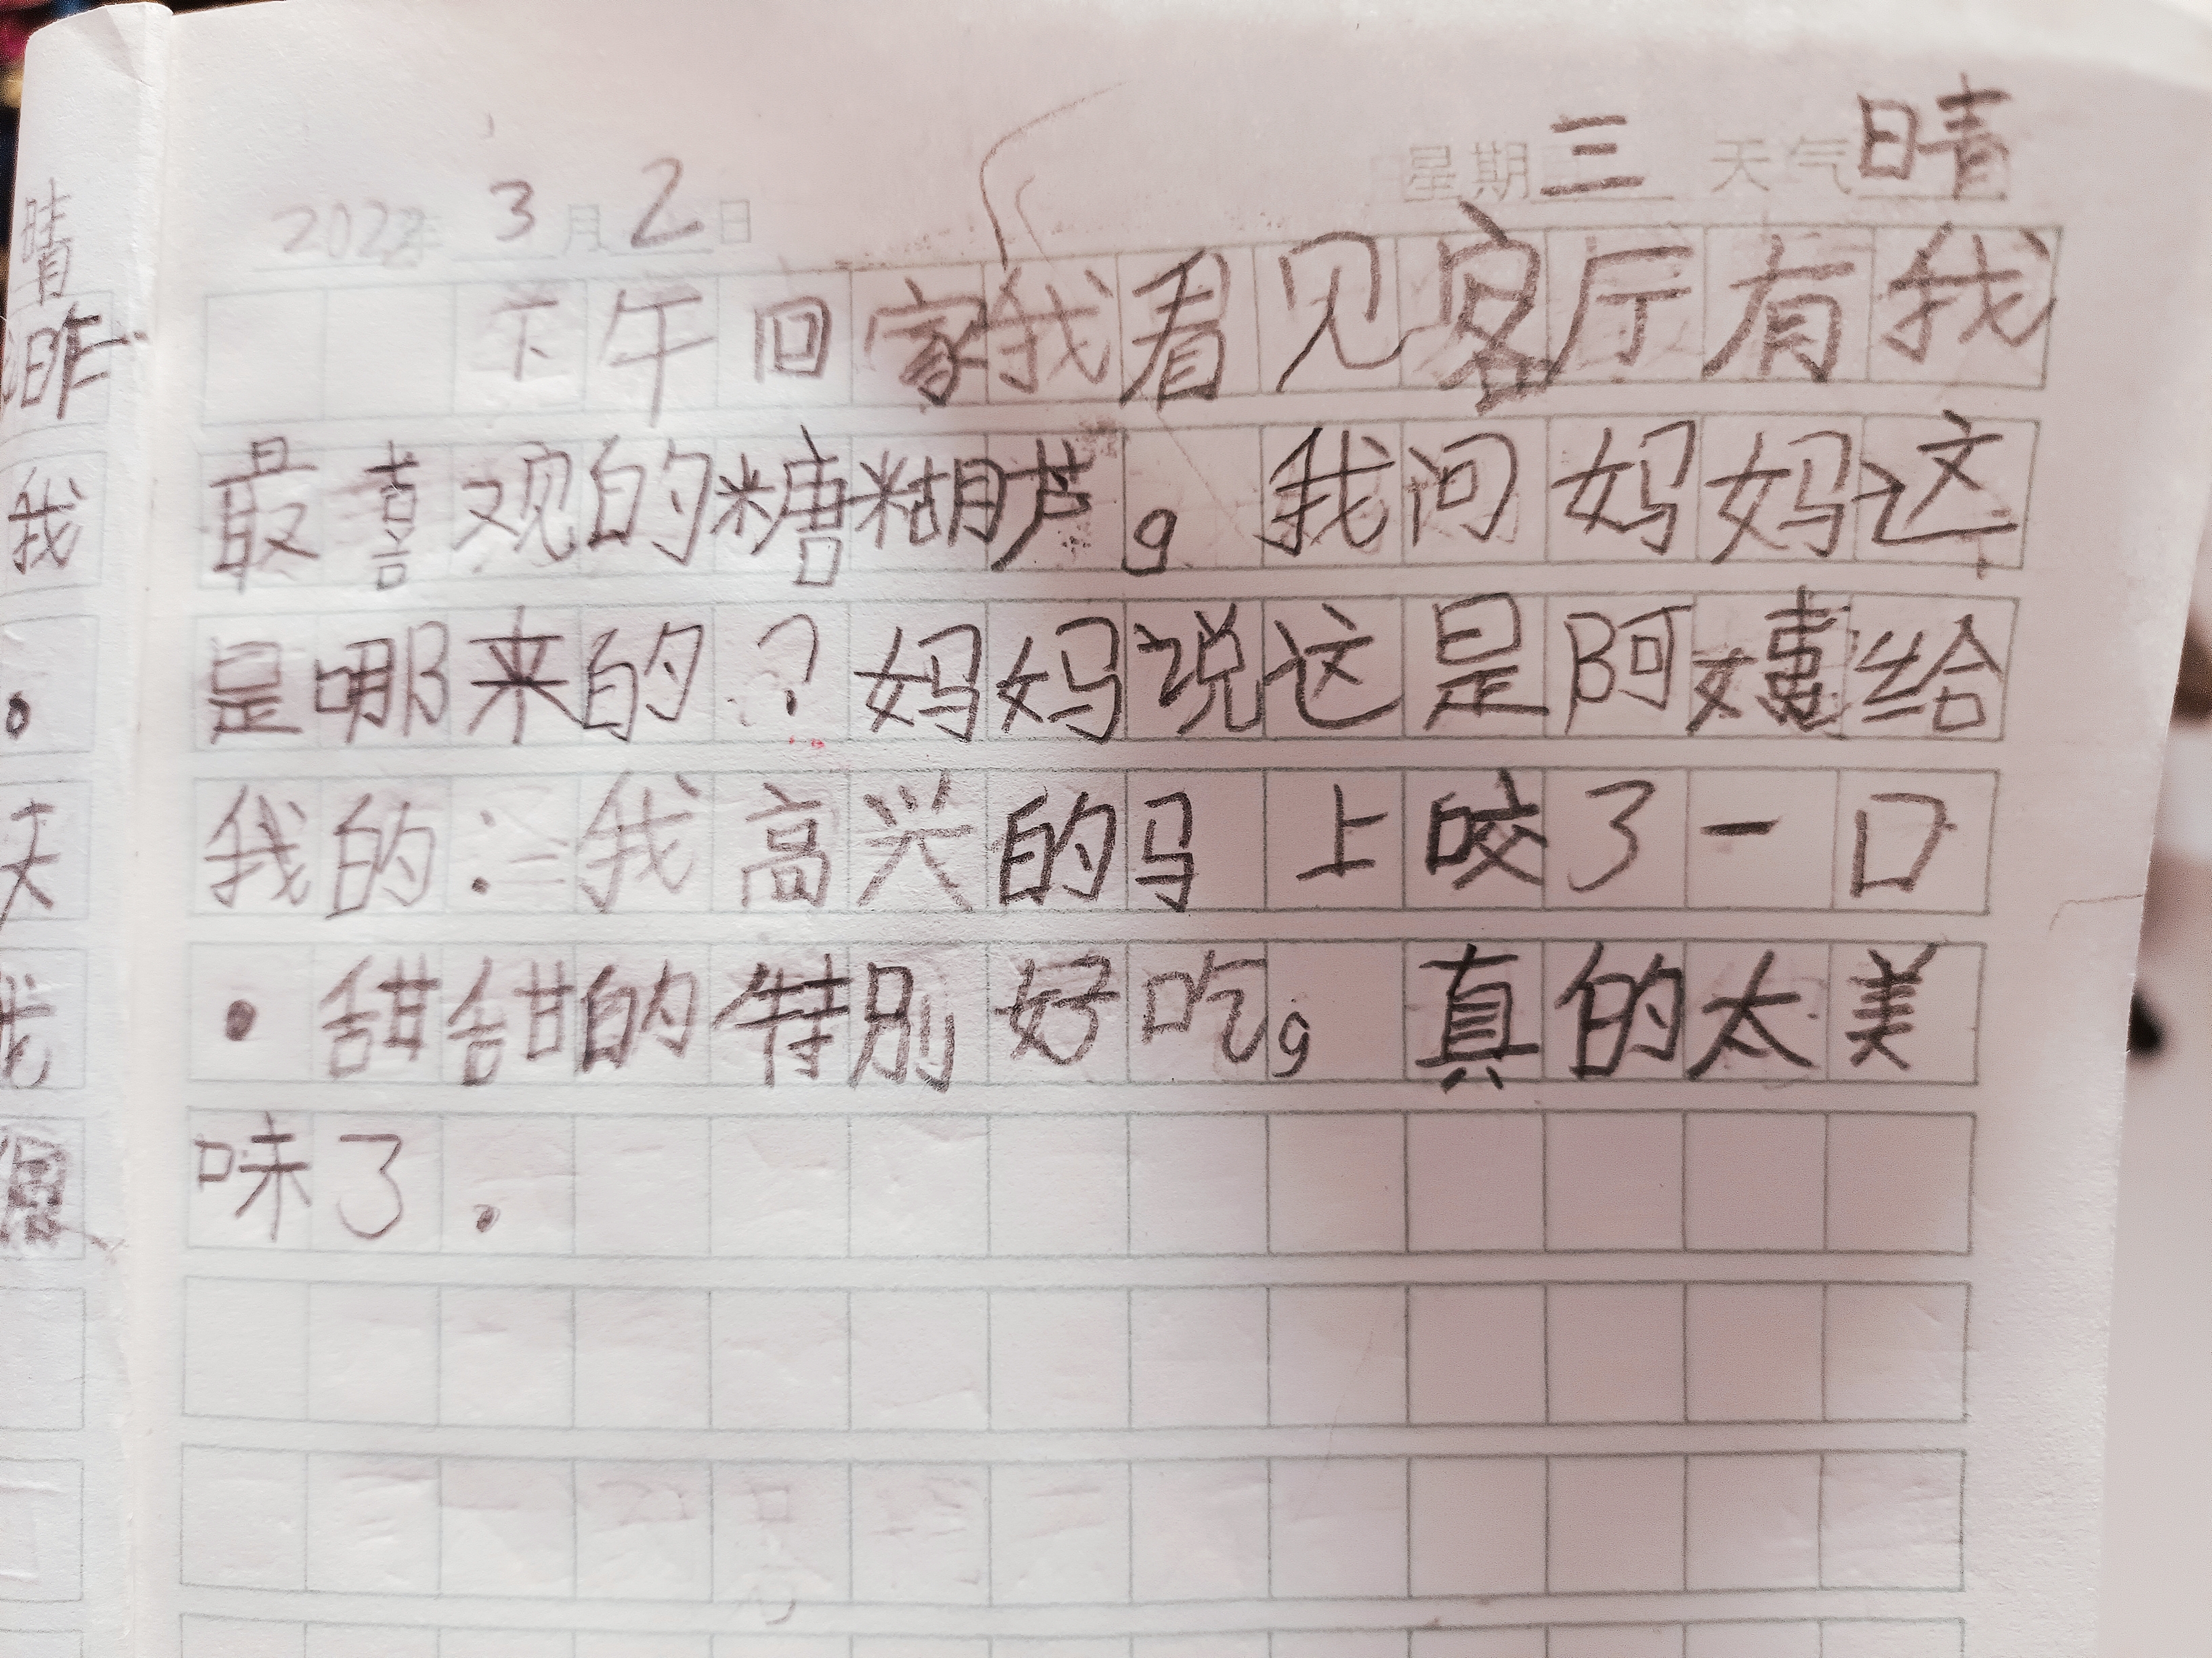 2022年 3 月 2 日 星期 三 天气 晴
下午回家我看见客厅有我
最喜观的糖糊芦。我问妈妈这
是哪来的？妈妈说这是阿姨给
我的：我高兴的马上咬了一口
.甜甜的特别好吃。真的太美
味了.
晴
昨
我
。
天
我